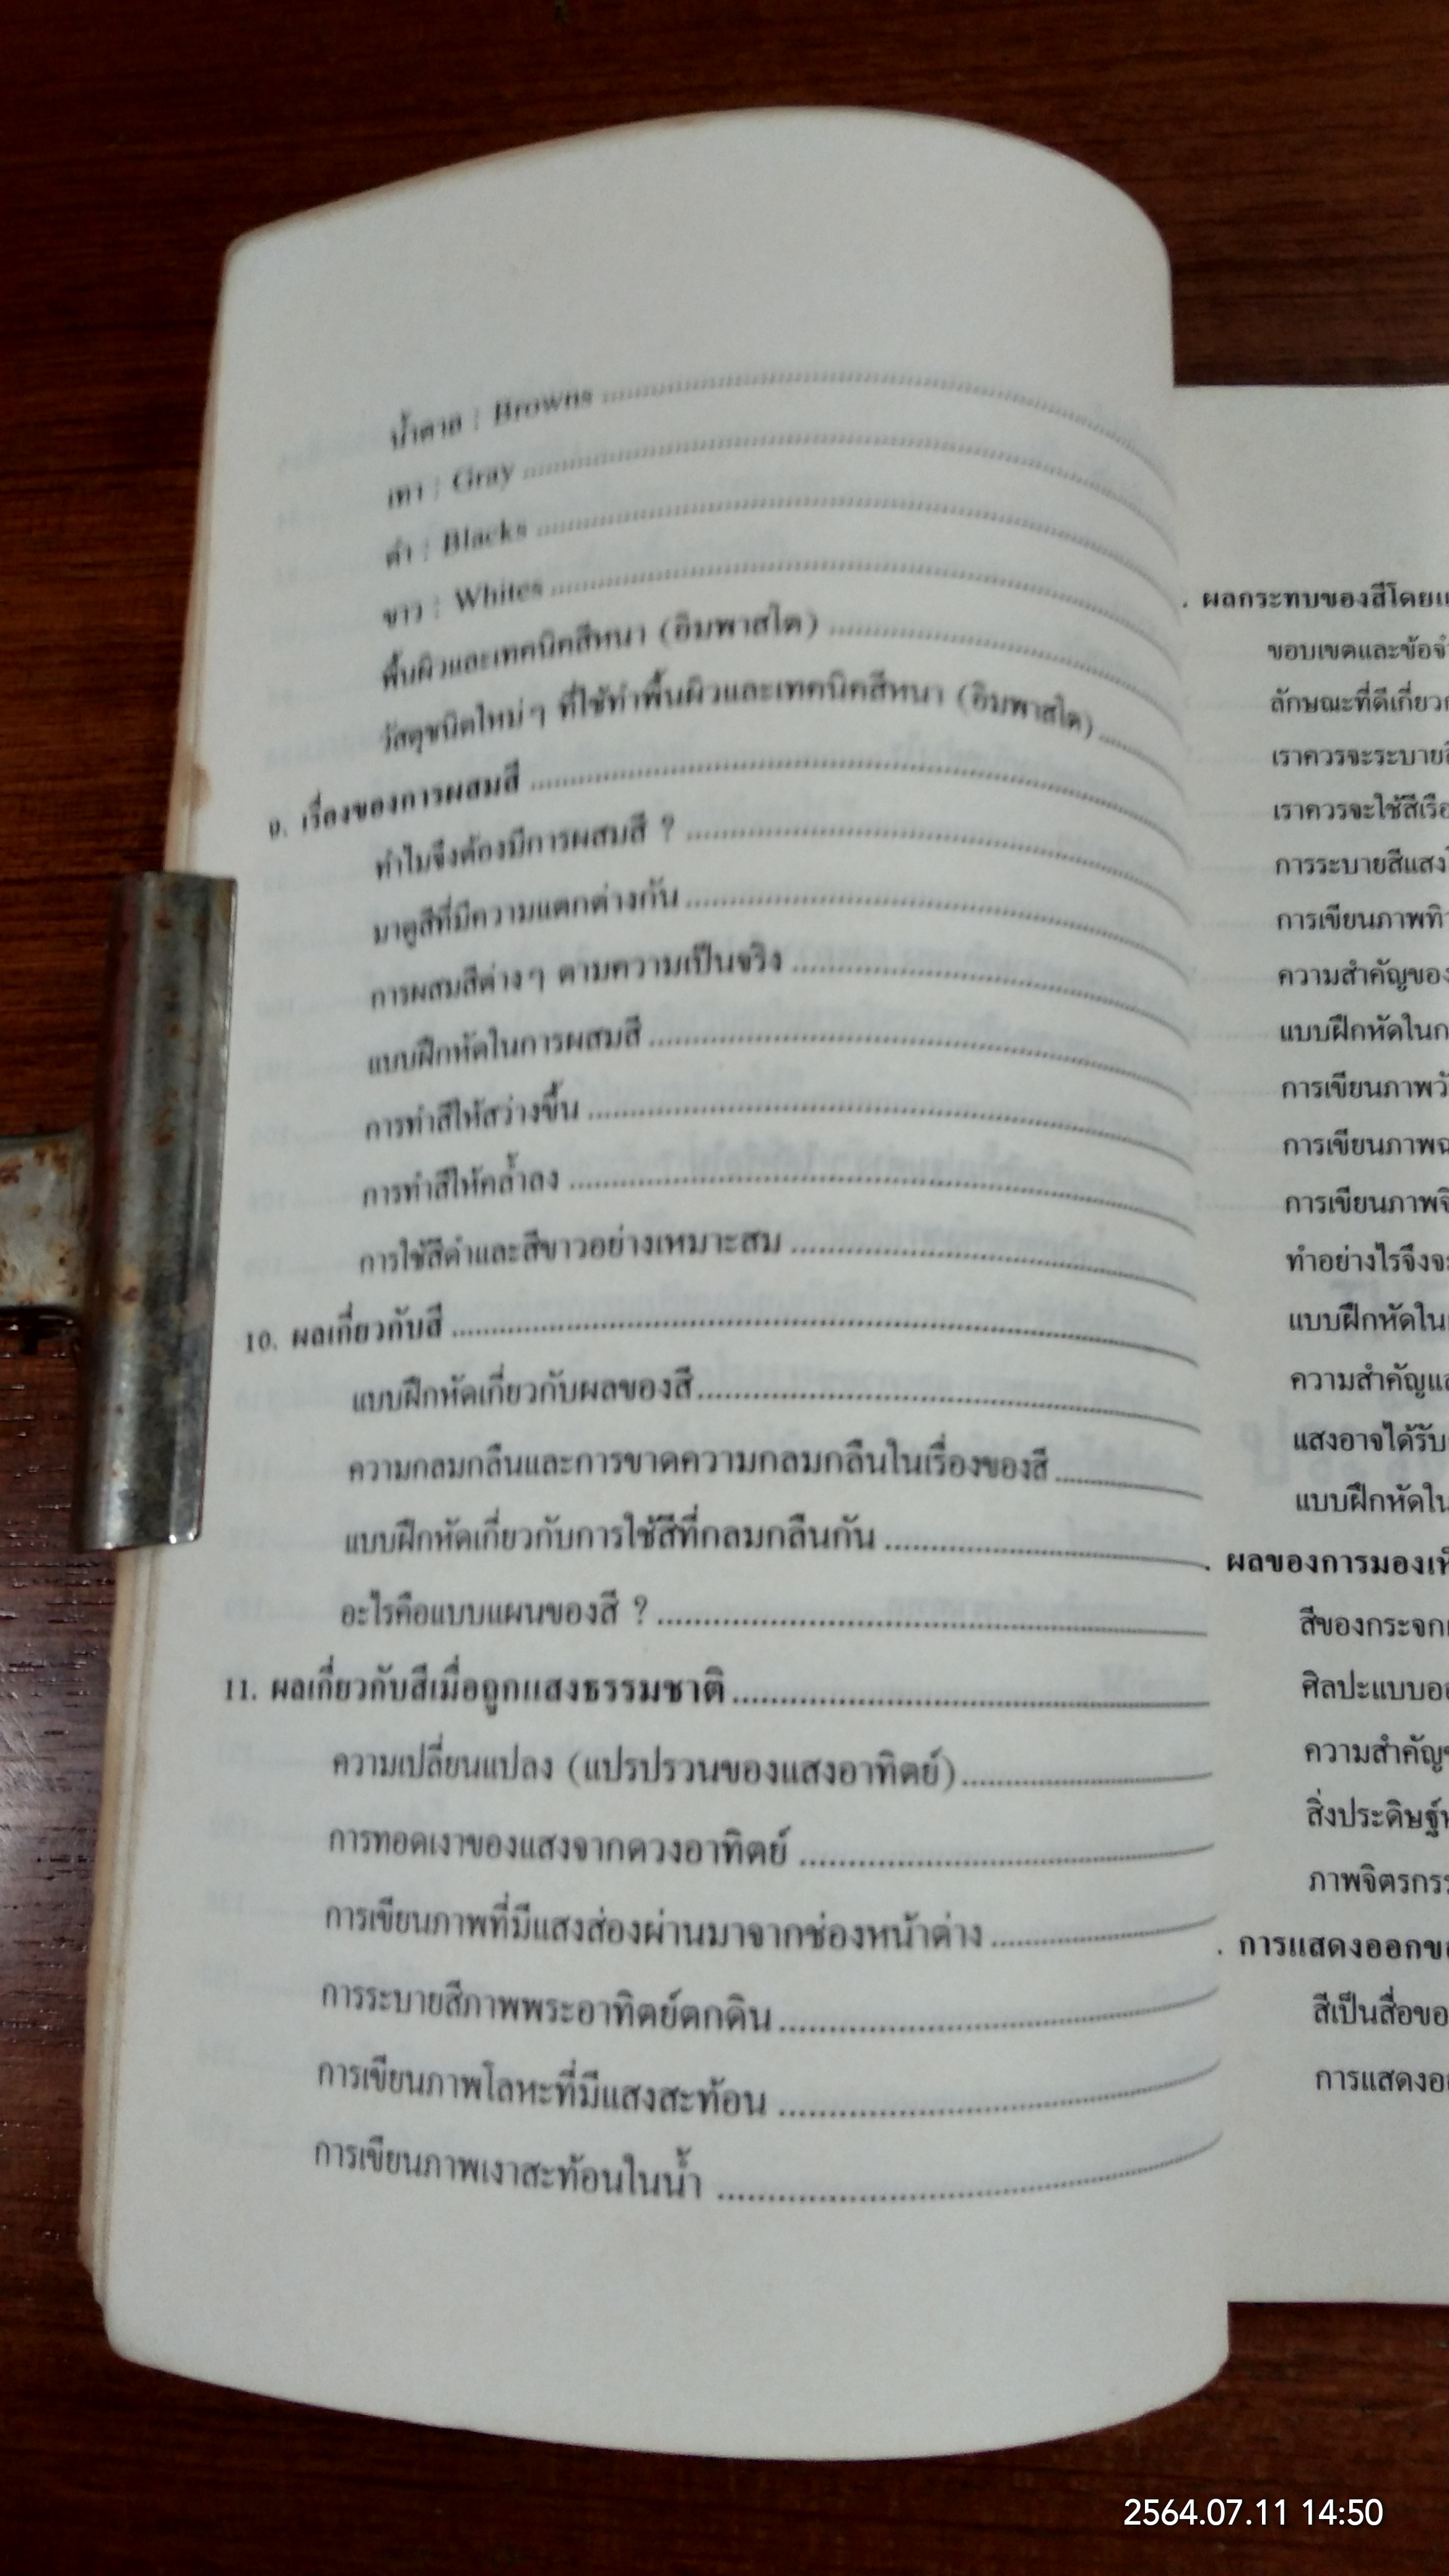 น้ำตาล : Browns
เทา : Gray
ดำ : Blacks
ขาว : Whites
พื้นผิวและเทคนิคสีหนา (อิมพาสโต)
วัสดุชนิดใหม่ๆ ที่ใช้ทำพื้นผิวและเทคนิคสีหนา (อิมพาสโต)
9. เรื่องของการผสมสี
ทำไมจึงต้องมีการผสมสี ?
มาดูสีที่มีความแตกต่างกัน
การผสมสีต่างๆ ตามความเป็นจริง
แบบฝึกหัดในการผสมสี
การทำสีให้สว่างขึ้น
การทำสีให้คล้ำลง
การใช้สีดำและสีขาวอย่างเหมาะสม
10. ผลเกี่ยวกับสี
แบบฝึกหัดเกี่ยวกับผลของสี
ความกลมกลืนและการขาดความกลมกลืนในเรื่องของสี
แบบฝึกหัดเกี่ยวกับการใช้สีที่กลมกลืนกัน
อะไรคือแบบแผนของสี ?
11. ผลเกี่ยวกับสีเมื่อถูกแสงธรรมชาติ
ความเปลี่ยนแปลง (แปรปรวนของแสงอาทิตย์)
การทอดเงาของแสงจากดวงอาทิตย์
การเขียนภาพที่มีแสงส่องผ่านมาจากช่องหน้าต่าง
การระบายสีภาพพระอาทิตย์ตกดิน
การเขียนภาพโลหะที่มีแสงสะท้อน
การเขียนภาพเงาสะท้อนในน้ำ
ผลกระทบของสีโดย
ขอบเขตและข้อ
ลักษณะที่ดีเกี่ยว
เราควรจะระบาย
เราควรจะใช้สี
การระบายสีแสง
การเขียนภาพ
ความสำคัญของ
แบบฝึกหัดใน
การเขียนภาพ
การเขียนภาพ
การเขียนภาพ
ทำอย่างไรจึง
แบบฝึกหัดใน
ความสำคัญ
แสงอาจได้รับ
แบบฝึกหัดใน
ผลของการมอง
สีของกระจก
ศิลปะแบบ
ความสำคัญ
สิ่งประดิษฐ์
ภาพ
การแสดงออก
สีเป็นสื่อ
การแสดง
2564.07.11 14:50